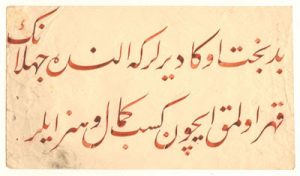 بدبخت اوکا دیرلرکه النده جهلانک
قهر اولمق ایچون کسب کمال و هنر ایلر